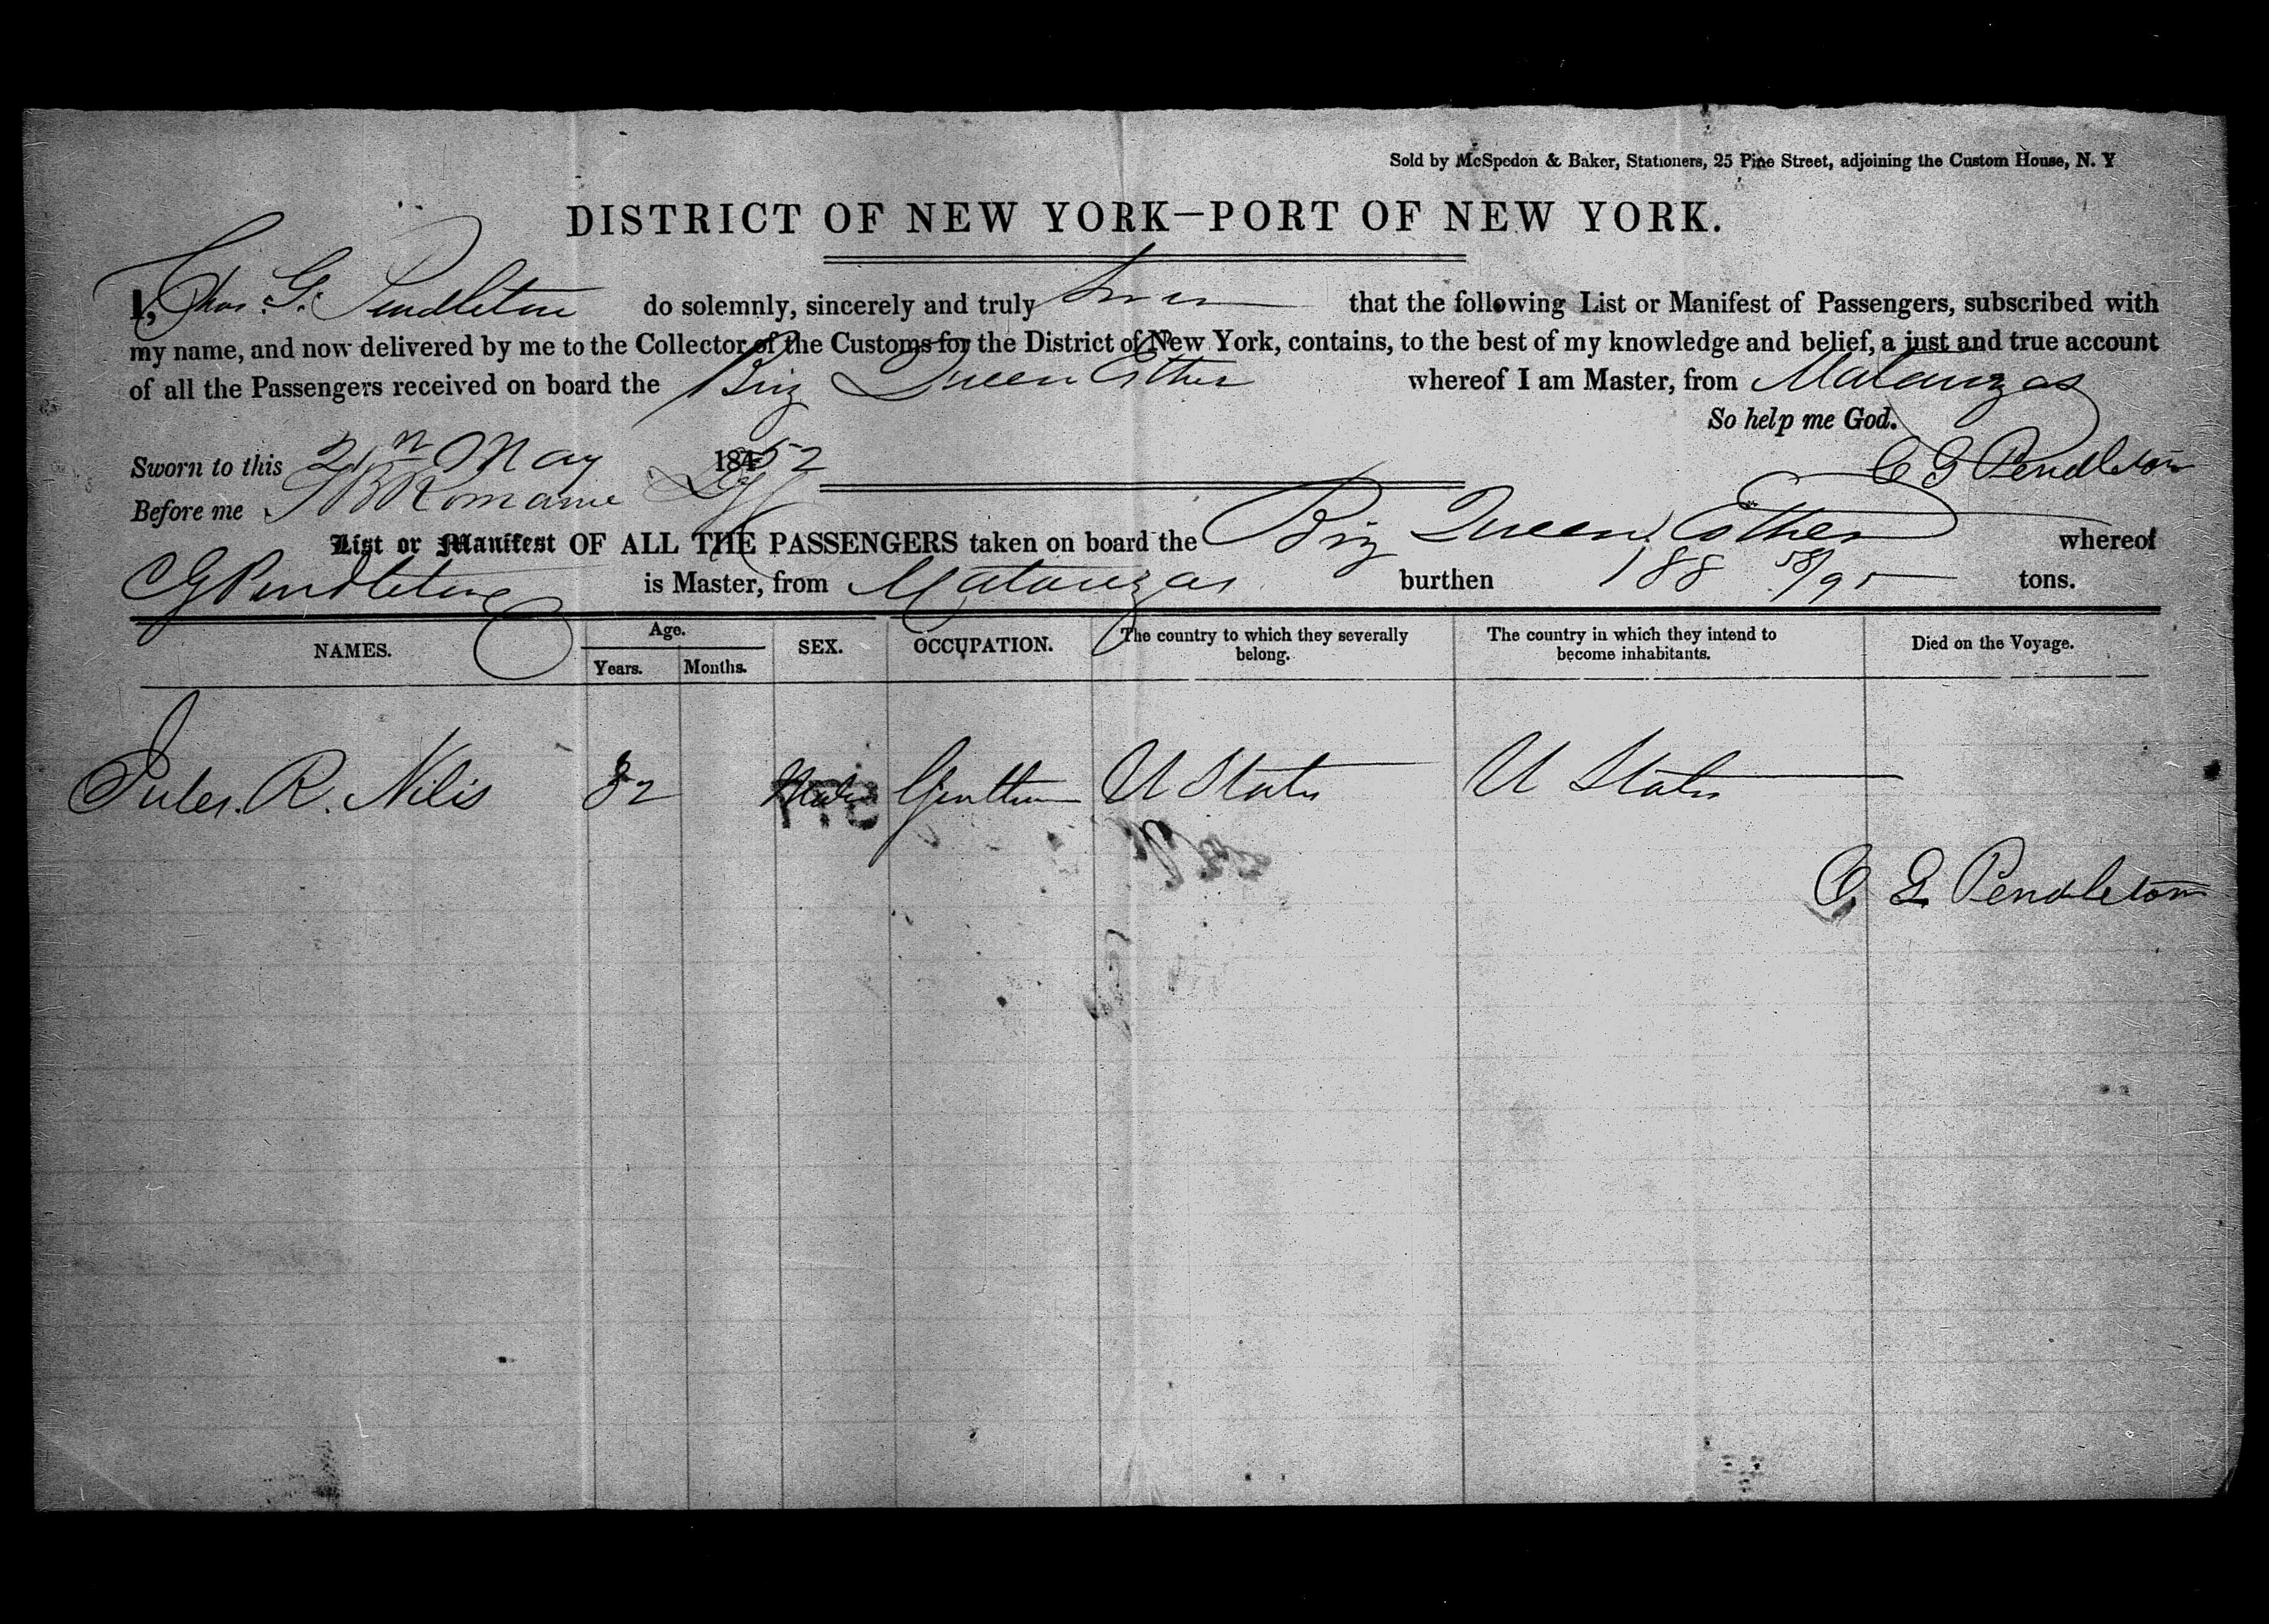 Sold by McSpedon & Baker, Stationers, 25 Pine Street, adjoining the Custom House, N. Y
DISTRICT OF NEW YORK—PORT OF NEW YORK.
I, Chas. G. Pendleton do solemnly, sincerely and truly swear that the following List or Manifest of Passengers, subscribed with
my name, and now delivered by me to the Collector of the Customs for the District of New York, contains, to the best of my knowledge and belief, a just and true account
of all the Passengers received on board the Brig Queen Esther whereof I am Master, from Matanzas
So help me God.
Sworn to this 21 May 1852 C G Pendleton
Before me Romaine
List or Manifest OF ALL THE PASSENGERS taken on board the Brig Queen Esther whereof
C G Pendleton is Master, from Matanzas burthen 188 58/95 tons.
NAMES. Age. Years. Months. SEX. OCCUPATION. The country to which they severally belong. The country in which they intend to become inhabitants. Died on the Voyage.
Jules. R. Nilis 32 Male U States U States
C. G. Pendleton